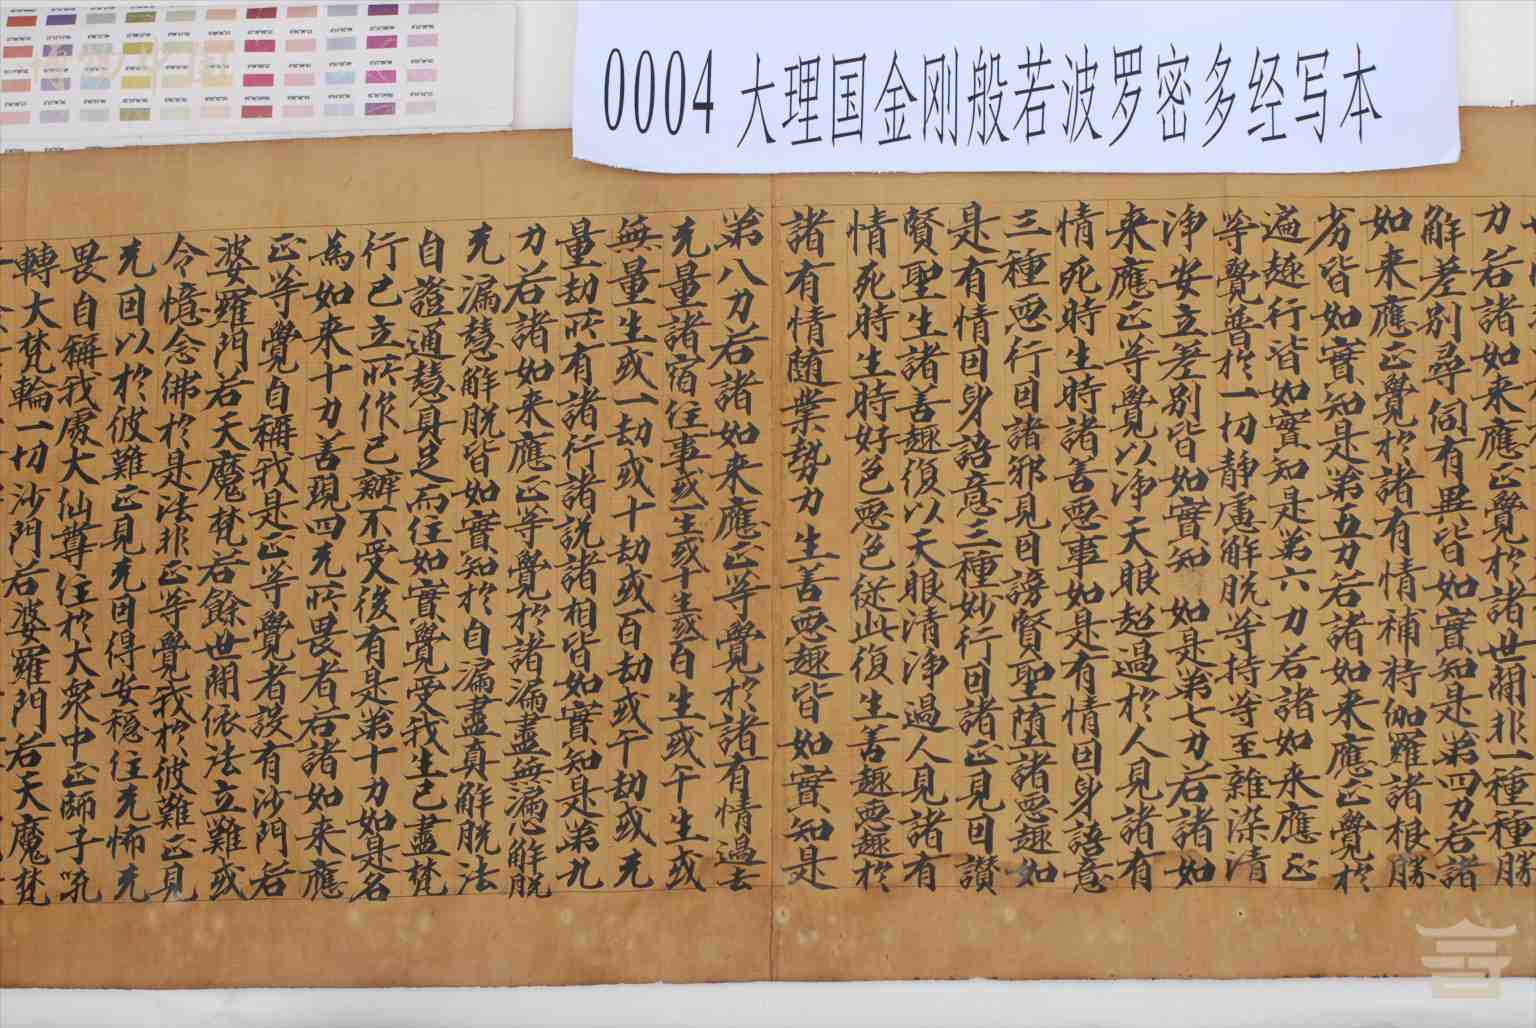 0004 大理国金刚般若波罗密多经写本
力若諸如来應正覺於諸世間非一種種勝
解差別尋伺有異皆如實知是第四力若諸
如来應正覺於諸有情補特伽羅諸根勝
劣皆如實知是第五力若諸如来應正覺於
遍趣行皆如實知是第六力若諸如来應正
等覺普於一切静慮解脱等持等至雜染清
浄安立差別皆如實知如是第七力若諸如
来應正等覺以浄天眼超過於人見諸有
情死時生時諸善惡事如是有情因身語意
三種惡行因諸邪見因謗賢聖堕諸惡趣如
是有情因身語意三種妙行因諸正見因讃
賢聖生諸善趣復以天眼清浄過人見諸有
情死時生時好色惡色従此復生善趣惡趣於
諸有情随業勢力生善惡趣皆如實知是
第八力若諸如来應正等覺於諸有情過去
无量諸宿住事或一生或十生或百生或千生或
無量生或一劫或十劫或百劫或千劫或无
量劫所有諸行諸説諸相皆如實知是第九
力若諸如来應正等覺於諸漏盡無漏心解脱
无漏慧解脱皆如實知於自漏盡真解脱法
自證通慧具足而住如實覺受我生已盡梵
行已立所作已辦不受後有是第十力如是名
為如来十力善現四无所畏者若諸如来應
正等覺自稱我是正等覺者設有沙門若
婆羅門若天魔梵若餘世間依法立難或
令憶念佛於是法非正等覺我於彼難正見
无因以於彼難正見无因得安穩住无怖无
畏自稱我處大仙尊位於大衆中正師子吼
轉大梵輪一切沙門若婆羅門若天魔梵